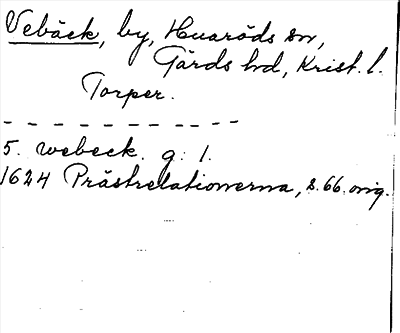 Vebäck, by, Huaröds sn,
Gärds hd, Krist. l.
Torper.
5. webeck. g: 1.
1624 Prästrelationerna, s. 66. orig.